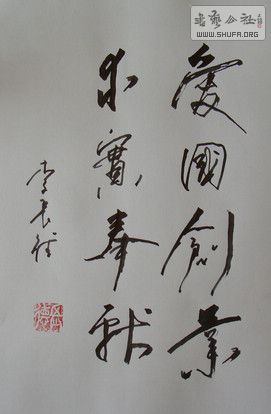 愛國創業
求實奉獻
李長春
書藝公社
WWW.SHUFA.ORG